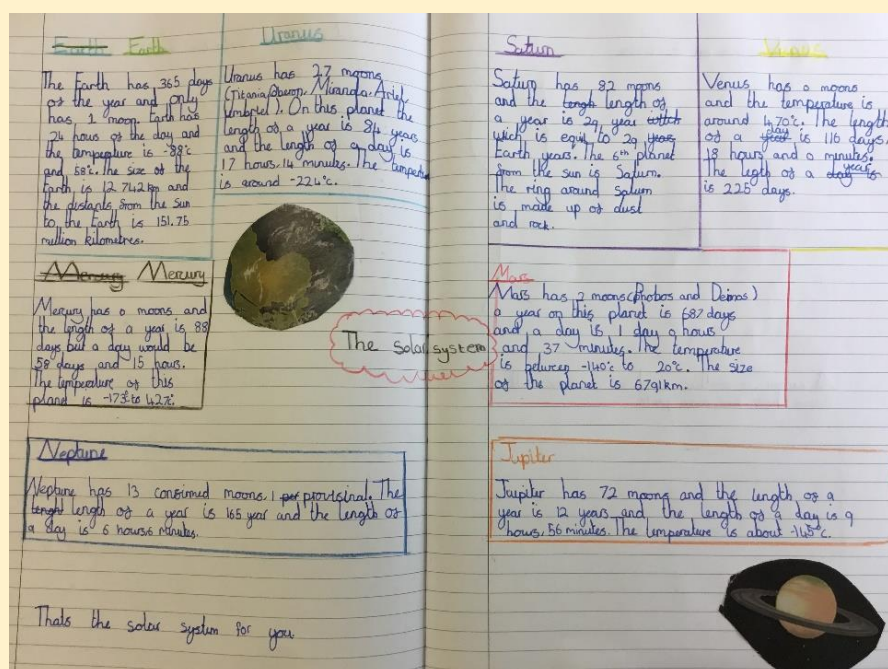 Earth Earth
The Earth has 365 days
of the year and only
has 1 moon. Earth has
24 hours of the day and
the temperature is -88°c
and 58°c. The size of the
Earth is 12 742km and
the distants from the Sun
to the Earth is 151.75
million kilometres.
Uranus
Uranus has 27 moons
(Titania, Oberon, Miranda, Ariel,
Umbriel). On this planet the
length of a year is 84 years
and the length of a day is
17 hours, 14 minutes. The temperature
is around -224°c.
Mercury Mercury
Mercury has 0 moons and
the length of a year is 88
days but a day would be
58 days and 15 hours.
The temperature of this
planet is -173°c to 427°c.
The solar system
Neptune
Neptune has 13 confirmed moons, 1 per provisinal. The
lenght length of a year is 165 year and the length of
a day is 6 hours 6 minutes.
Thats the solar system for you
Saturn
Saturn has 82 moons
and the lengh length of
a year is 29 year which
which is equil to 29 years
Earth years. The 6th planet
from the sun is Saturn.
The ring around Saturn
is made up of dust
and rock.
Venus
Venus has 0 moons
and the temperature is
around 470°c. The length
of a year day is 116 days,
18 hours and 0 minutes.
The legth of a day year is
is 225 days.
Mars
Mars has 2 moons (Phobos and Deimos)
a year on this planet is 687 days
and a day is 1 day 0 hours
and 37 minutes. The temperature
is between -140°c to 20°c. The size
of the planet is 6791km.
Jupiter
Jupiter has 72 moons and the length of a
year is 12 years and the length of a day is 9
hours, 56 minutes. The temperature is about -145°c.